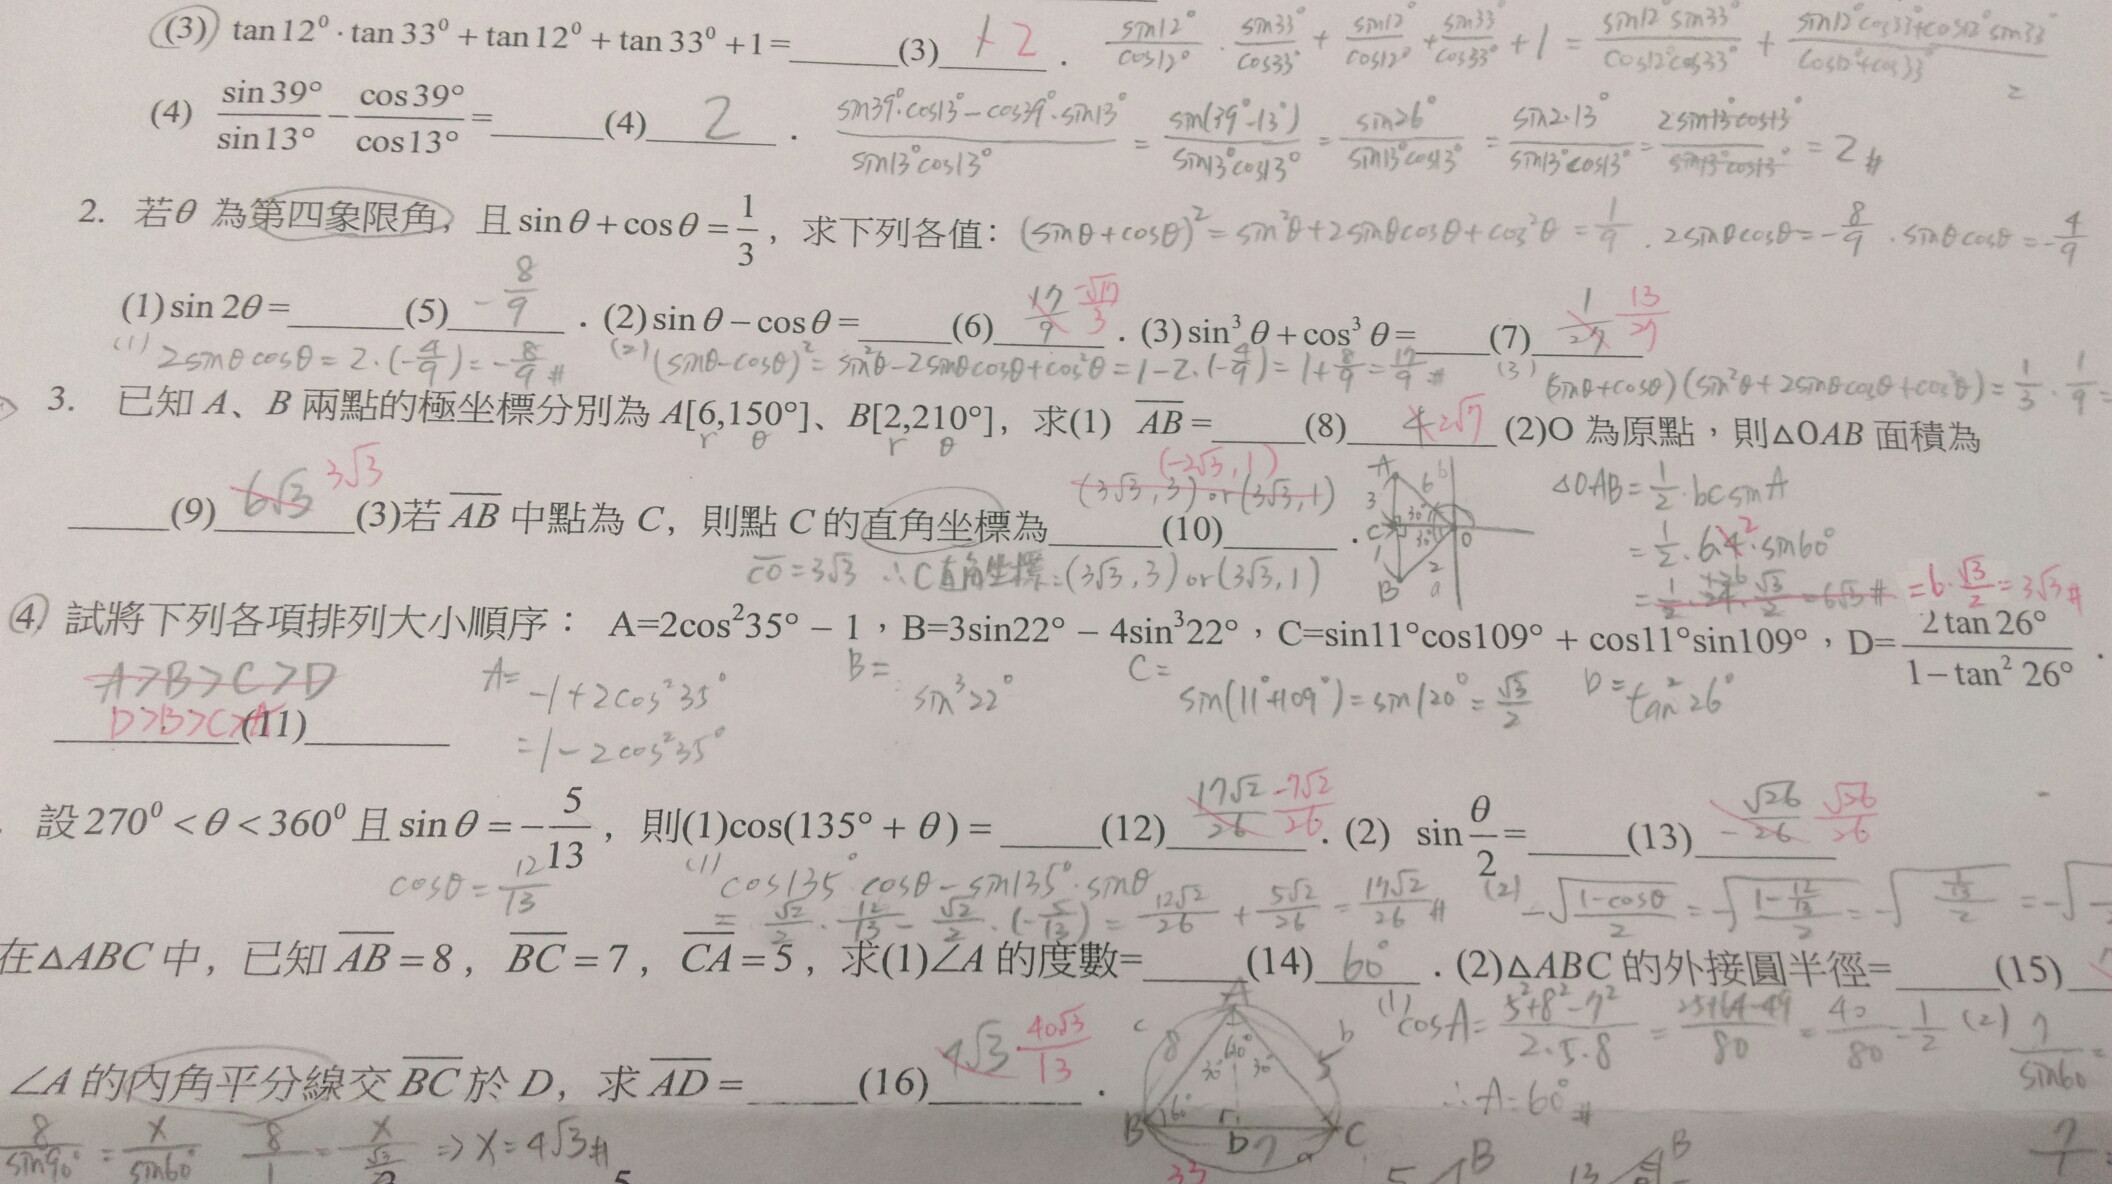 (3) tan12⁰·tan33⁰+tan12⁰+tan33⁰+1=______(3) 2 . sin12°/cos12° · sin33°/cos33° + sin12°/cos12° + sin33°/cos33° + 1 = sin12°sin33°/cos12°cos33° + sin12°cos33°+cos12°sin33°/cos12°+cos33° =
(4) sin39°/sin13° − cos39°/cos13° =______(4) 2 . sin39°·cos13°−cos39°·sin13°/sin13°cos13° = sin(39°−13°)/sin13°cos13° = sin26°/sin13°cos13° = sin2·13°/sin13°cos13° = 2sin13°cos13°/sin13°cos13° = 2#
2. 若θ 為第四象限角，且 sinθ+cosθ=1/3，求下列各值： (sinθ+cosθ)²=sin²θ+2sinθcosθ+cos²θ=1/9 . 2sinθcosθ=−8/9 . sinθcosθ=−4/9
(1)sin2θ=______(5) −8/9 . (2)sinθ−cosθ=_____(6) 17/9 −√17/3 . (3)sin³θ+cos³θ=____(7) 1/27 13/27
(1) 2sinθcosθ=2·(−4/9)=−8/9# (2) (sinθ−cosθ)²=sin²θ−2sinθcosθ+cos²θ=1−2·(−4/9)=1+8/9=17/9# (3) (sinθ+cosθ)(sin²θ+2sinθcosθ+cos²θ)=1/3·1/9=
3. 已知 A、B 兩點的極坐標分別為 A[6,150°]、B[2,210°]，求(1) AB=_____(8) 4 2√7 (2)O 為原點，則△OAB 面積為
r θ r θ
_____(9) 6√3 3√3 (3)若 AB 中點為 C，則點 C 的直角坐標為______(10)______ .
(−2√3,1)
(3√3,3) or (3√3,1)
A 6 b 3 30° C 30° O 1 2 B a
△OAB=1/2·bcsinA
=1/2·6·4·2·sin60°
CO=3√3 ∴C直角坐標:(3√3,3) or (3√3,1)
=6√3# =6·√3/2=3√3#
④ 試將下列各項排列大小順序： A=2cos²35°−1，B=3sin22°−4sin³22°，C=sin11°cos109°+cos11°sin109°，D=2tan26°/1−tan²26° .
A>B>C>D
D>B>C>A (11)
A= −1+2cos²35°
=1−2cos²35°
B= sin³22°
C= sin(11°+109°)=sin120°=√3/2
D= tan²26°
設270⁰<θ<360⁰ 且 sinθ=−5/13，則(1)cos(135°+θ)=_____(12) 17√2/26 −7√2/26 . (2) sinθ/2=_____(13) −√26/26 √26/26
cosθ=12/13 (1) cos135°cosθ−sin135°·sinθ
=√2/2·12/13−√2/2·(−5/13)=12√2/26+5√2/26=17√2/26# (2) −√1−cosθ/2=−√1−12/13/2=−√1/13/2=−√
在△ABC 中，已知 AB=8，BC=7，CA=5，求(1)∠A 的度數=_____(14) 60° . (2)△ABC 的外接圓半徑=_____(15)
(1) cosA=5²+8²−7²/2·5·8=25+64−49/80=40/80=1/2 (2) 7/sin60=
∴A=60°#
∠A 的內角平分線交 BC 於 D，求 AD=_____(16) 4√3 40√3/13 .
A c b 8 60° 30° 30° 5 B 60° D 7 C a
8/sin90°=x/sin60° 8/1=x/√3/2 ⇒x=4√3#
5 B 13 B